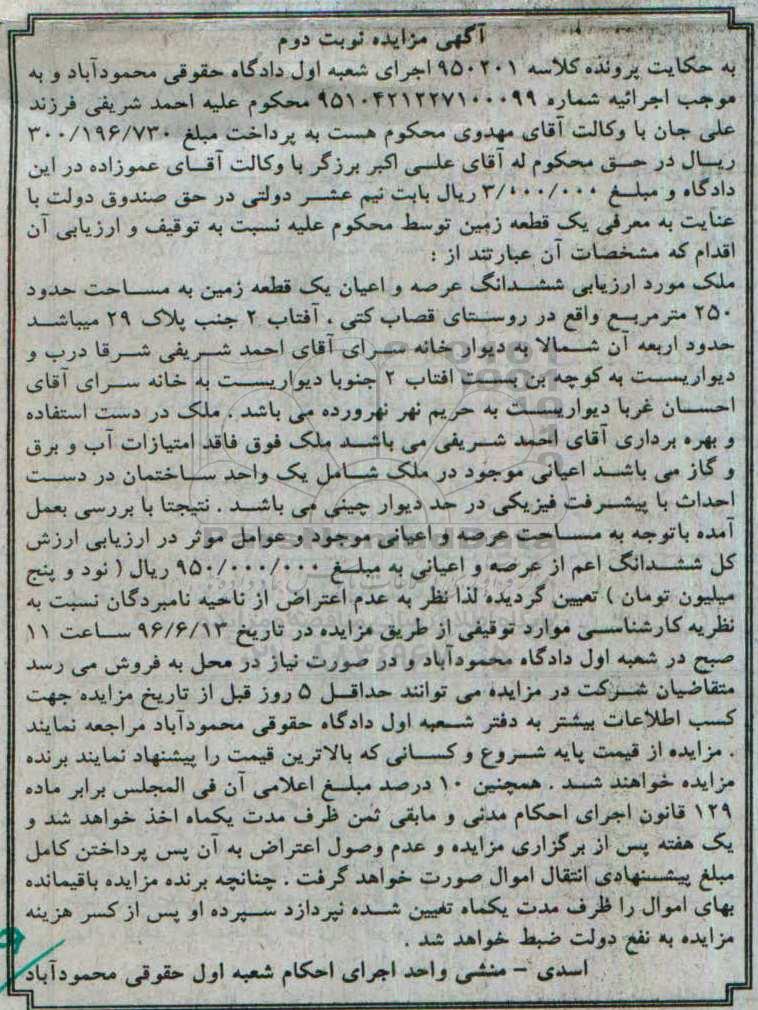 آگهی مزایده نوبت دوم
به حکایت پرونده کلاسه ۹۵۰۲۰۱ اجرای شعبه اول دادگاه حقوقی محمودآباد و به
موجب اجرائیه شماره ۹۵۱۰۴۲۱۲۲۷۱۰۰۰۹۹ محکوم علیه احمد شریفی فرزند
علی جان با وکالت آقای مهدوی محکوم هست به پرداخت مبلغ ۳۰۰/۱۹۶/۷۳۰
ریال در حق محکوم له آقای علی اکبر برزگر با وکالت آقای عموزاده در این
دادگاه و مبلغ ۳/۰۰۰/۰۰۰ ریال بابت نیم عشر دولتی در حق صندوق دولت با
عنایت به معرفی یک قطعه زمین توسط محکوم علیه نسبت به توقیف و ارزیابی آن
اقدام که مشخصات آن عبارتند از :
ملک مورد ارزیابی ششدانگ عرصه و اعیان یک قطعه زمین به مساحت حدود
۲۵۰ مترمربع واقع در روستای قصاب کتی ، آفتاب ۲ جنب پلاک ۲۹ میباشد
حدود اربعه آن شمالا به دیوار خانه سرای آقای احمد شریفی شرقا درب و
دیواریست به کوچه بن بست افتاب ۲ جنوبا دیواریست به خانه سرای آقای
احسان غربا دیواریست به حریم نهر نهرورده می باشد . ملک در دست استفاده
و بهره برداری آقای احمد شریفی می باشد ملک فوق فاقد امتیازات آب و برق
و گاز می باشد اعیانی موجود در ملک شامل یک واحد ساختمان در دست
احداث با پیشرفت فیزیکی در حد دیوار چینی می باشد . نتیجتا با بررسی بعمل
آمده باتوجه به مساحت عرصه و اعیانی موجود و عوامل موثر در ارزیابی ارزش
کل ششدانگ اعم از عرصه و اعیانی به مبلغ ۹۵۰/۰۰۰/۰۰۰ ریال ( نود و پنج
میلیون تومان ) تعیین گردیده لذا نظر به عدم اعتراض از ناحیه نامبردگان نسبت به
نظریه کارشناسی موارد توقیفی از طریق مزایده در تاریخ ۹۶/۶/۱۳ ساعت ۱۱
صبح در شعبه اول دادگاه محمودآباد و در صورت نیاز در محل به فروش می رسد
متقاضیان شرکت در مزایده می توانند حداقل ۵ روز قبل از تاریخ مزایده جهت
کسب اطلاعات بیشتر به دفتر شعبه اول دادگاه حقوقی محمودآباد مراجعه نمایند
. مزایده از قیمت پایه شروع و کسانی که بالاترین قیمت را پیشنهاد نمایند برنده
مزایده خواهند شد . همچنین ۱۰ درصد مبلغ اعلامی آن فی المجلس برابر ماده
۱۲۹ قانون اجرای احکام مدنی و مابقی ثمن ظرف مدت یکماه اخذ خواهد شد و
یک هفته پس از برگزاری مزایده و عدم وصول اعتراض به آن پس پرداختن کامل
مبلغ پیشنهادی انتقال اموال صورت خواهد گرفت . چنانچه برنده مزایده باقیمانده
بهای اموال را ظرف مدت یکماه تعیین شده نپردازد سپرده او پس از کسر هزینه
مزایده به نفع دولت ضبط خواهد شد .
اسدی - منشی واحد اجرای احکام شعبه اول حقوقی محمودآباد